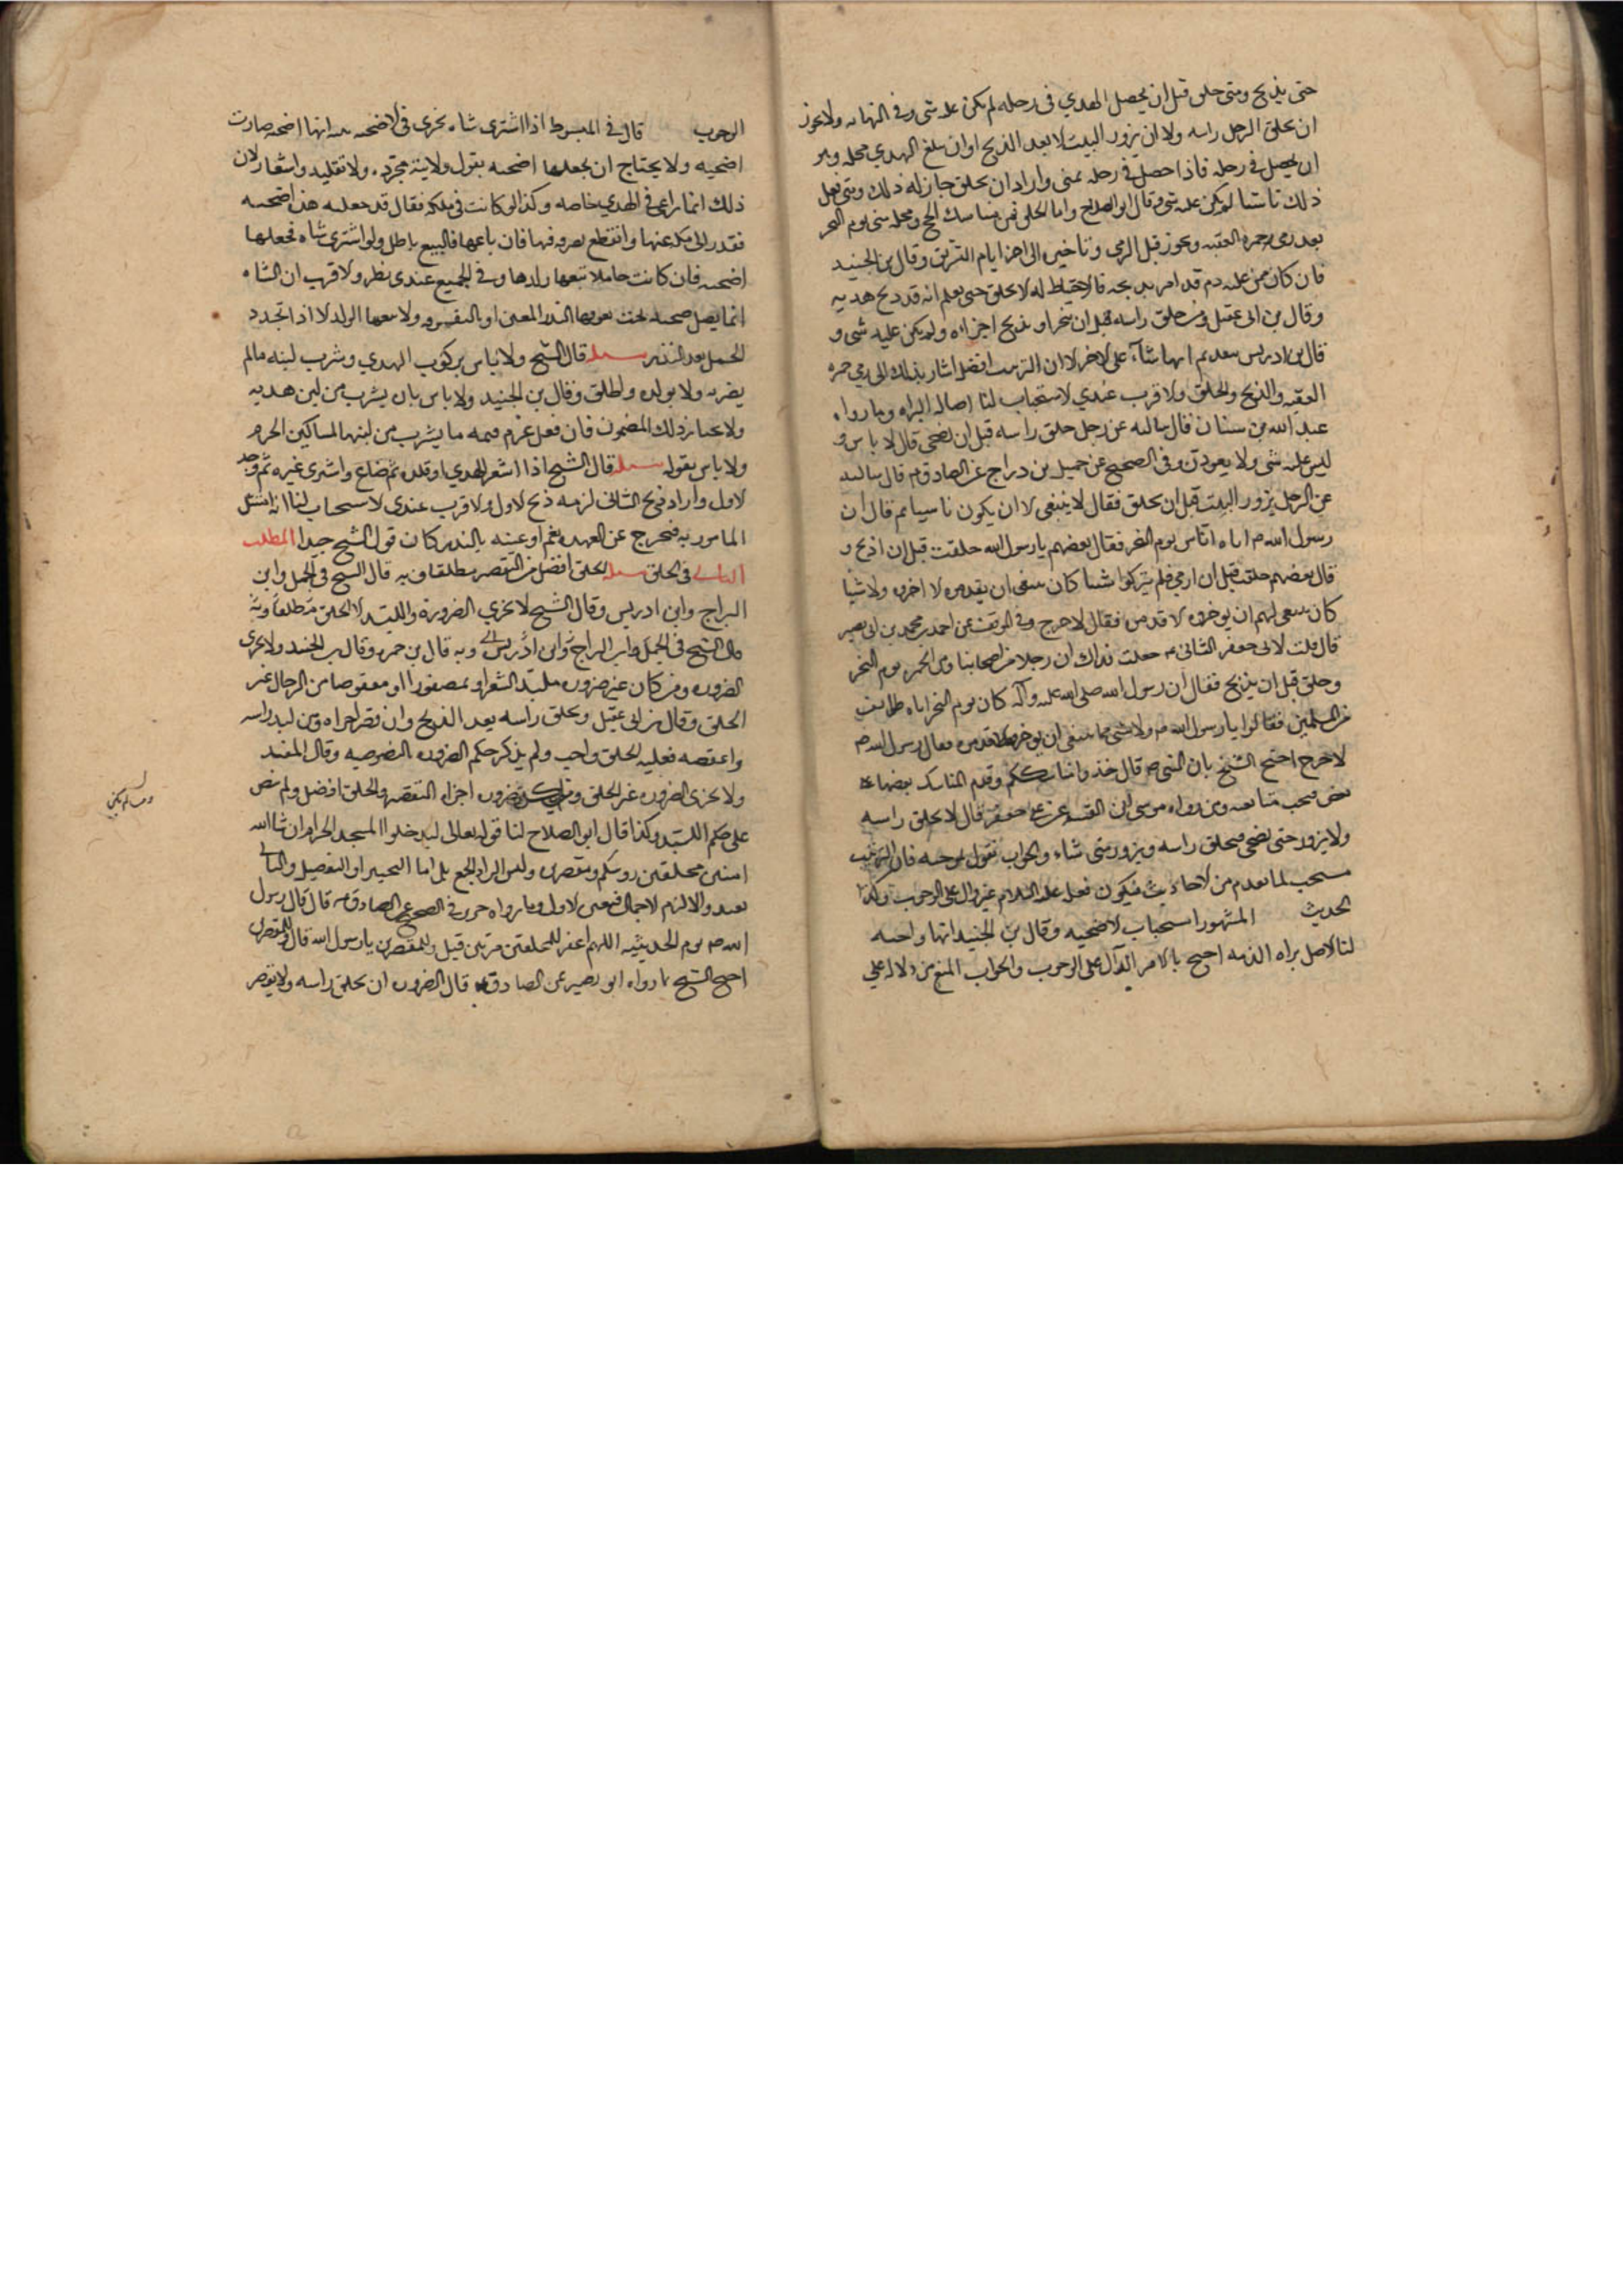 حتى يذبح ومتى حلق قبل ان يحصل الهدي في رحله لم يكن عليه شي وفي النهايه ولا يجوز
ان يحلق الرجل راسه ولا ان يزور البيت الا بعد الذبح او ان يبلغ الهدي محله وهو
ان يحصل في رحله فاذا حصل في رحله بمنى واراد ان يحلق جاز له ذلك ومتى فعل
ذلك ناسيا لم يكن عليه شي وقال ابو الصلاح واما الحلق فمن مناسك الحج ومحله منى يوم النحر
بعد رمي جمره العقبه ويجوز قبل الرمى وتاخيره الى اخر ايام التشريق وقال بن الجنيد
فان كان ممن عليه دم قد امر بذبحه فالاحتياط له الا يحلق حتى يعلم انه قد ذبح هديه
وقال بن ابى عقيل ومن حلق راسه قبل ان ينحر او يذبح اجزاه ولم يكن عليه شى و
قال بن ادريس بتقديم ايها شاء على الاخر الا ان الترتيب افضل اشار بذلك الى رمي جمره
العقبه والذبح والحلق والاقرب عندي الاستحباب لنا اصاله البراه وما رواه
عبد الله بن سنان قال سالته عن رجل حلق راسه قبل ان يضحى قال لا باس و
ليس عليه شى ولا يعودن وفى الصحيح عن جميل بن دراج عن الصادق م قال سالته
عن الرجل يزور البيت قبل ان يحلق فقال لا ينبغى الا ان يكون ناسيا ثم قال ان
رسول الله ص اتاه اناس يوم النحر فقال بعضهم يا رسول الله حلقت قبل ان اذبح و
قال بعضهم حلقت قبل ان ارمي فلم يتركوا شيئا كان ينبغى ان يقدموه الا اخروه ولا شيئا
كان ينبغى لهم ان يوخروه الا قدموه فقال لا حرج وفى الموثق عن احمد بن محمد بن ابى نصر
قال قلت لابى جعفر الثانى ع جعلت فداك ان رجلا من اصحابنا رمى الجمره يوم النحر
وحلق قبل ان يذبح فقال ان رسول الله صلى الله عليه وآله كان يوم النحر اتاه طوائف
من المسلمين فقالوا يا رسول الله ص ولا شى مما ينبغى ان يوخروه الا قدموه فقال رسول الله ص
لا حرج احتج الشيخ بان النبي ص قال خذوا مناسككم وقدم المناسك بعضها على
بعض فيجب متابعته وبما رواه موسى ابن القسم عن على ع قال لا يحلق راسه
ولا يزور حتى يضحى فيحلق راسه ويزور متى شاء والجواب نقول بموجبه فان الترتيب
مستحب لما تقدم من الاحاديث فيكون فعله عليه السلام غير دال على الوجوب وكذا
الحديث المشهور استحباب الاضحيه وقال بن الجنيد انها واجبه
لنا الاصل براه الذمه احتج بالامر الدال على الوجوب والجواب المنع من دلاله على
الوجوب قال في المبسوط اذا اشترى شاه تجزى فى الاضحيه بنيه انها اضحيه صارت
اضحيه ولا يحتاج ان يجعلها اضحيه بقول ولا نية مجرده ولا تقليد واشعار لان
ذلك انما يراعى فى الهدي خاصه وكذا لو كانت فى ملكه فقال قد جعلت هذه اضحيه
فقد زال ملكه عنها وانقطع تصرفه فيها فان باعها فالبيع باطل ولو اشترى شاه فجعلها
اضحيه فان كانت حاملا تبعها ولدها وفى الجميع عندى نظر والاقرب ان الشاه
انما يصير اضحيه بحيث بالنذر المعين او ولا يتبعها الولد الا اذا تجدد
الحمل بعد النذر مسله قال الشيخ ولا باس بركوب الهدي وشرب لبنه ما لم
يضر به ولا بولده واطلق وقال بن الجنيد ولا باس بان يشرب من لبن هديه
ولا يختار ذلك المضمون فان فعل غرم قيمه ما يشرب من لبنها لمساكين الحرم
ولا باس بقوله مسله قال الشيخ اذا اشعر الهدي او قلده ثم ضاع واشترى غيره ثم وجد
الاول واراد ذبح الثانى لزمه ذبح الاول والاقرب عندي الاستحباب لنا انه امتثل
المامور به فيخرج عن العهده نعم لو عينه بالنذر كان قول الشيخ جيدا المطلب
الثالث فى الحلق مسله الحلق افضل من التقصير مطلقا وبه قال الشيخ فى الجمل وابن
البراج وابن ادريس وقال الشيخ لا يجزي الصرورة والملبد الا الحلق مطلقا وبه
قال الشيخ فى الجمل وابن البراج وابن ادريس وبه قال بن حمزه وقال بن الجنيد ولا يجزى
الصروره ومن كان غير صروره ملبد الشعر او مضفورا او معقوصا من الرجال غير
الحلق وقال بن ابى عقيل ويحلق راسه بعد الذبح وان قصر اجزاه ومن لبد راسه
واعقصه فعليه الحلق واجب ولم يذكر حكم الصروره بالخصوصيه وقال المفيد
ولا يجزى الصروره غير الحلق ومن لم يكن صروره اجزاه التقصير والحلق افضل ولم ينص
على حكم الملبد وكذا قال ابو الصلاح لنا قوله تعالى ليدخلوا المسجد الحرام ان شا الله
امنين محلقين روسكم ومقصرين وليس المراد الجمع بل اما التخيير او التفصيل والثانى
بعيد والا لزم الاجمال فتعين الاول وما رواه حريز فى الصحيح عن الصادق م قال قال رسول
الله ص يوم الحديبيه اللهم اغفر للمحلقين مرتين قيل وللمقصرين يا رسول الله قال وللمقصرين
احتج الشيخ بما رواه ابو بصير عن الصادق م قال الصروره ان يحلق راسه ولا يقصر
ومن لم يكن